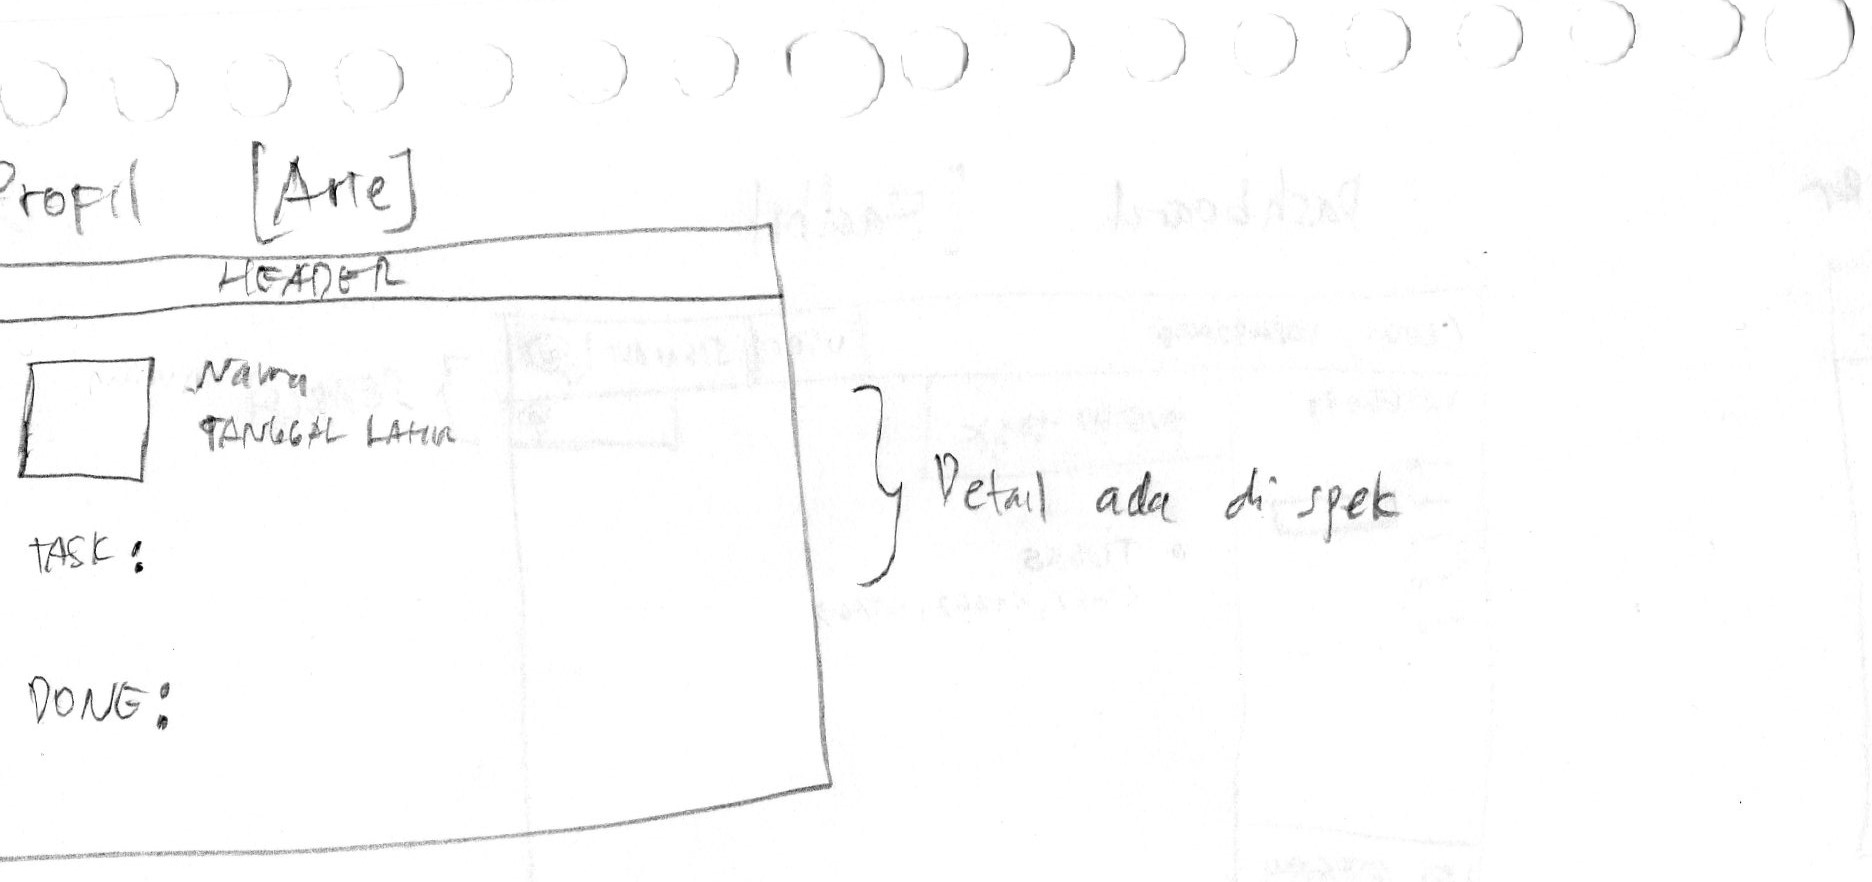 Profil [Arie]
HEADER
Nama
TANGGAL LAHIR
TASK:
DONE:
Detail ada di spek
Dashboard